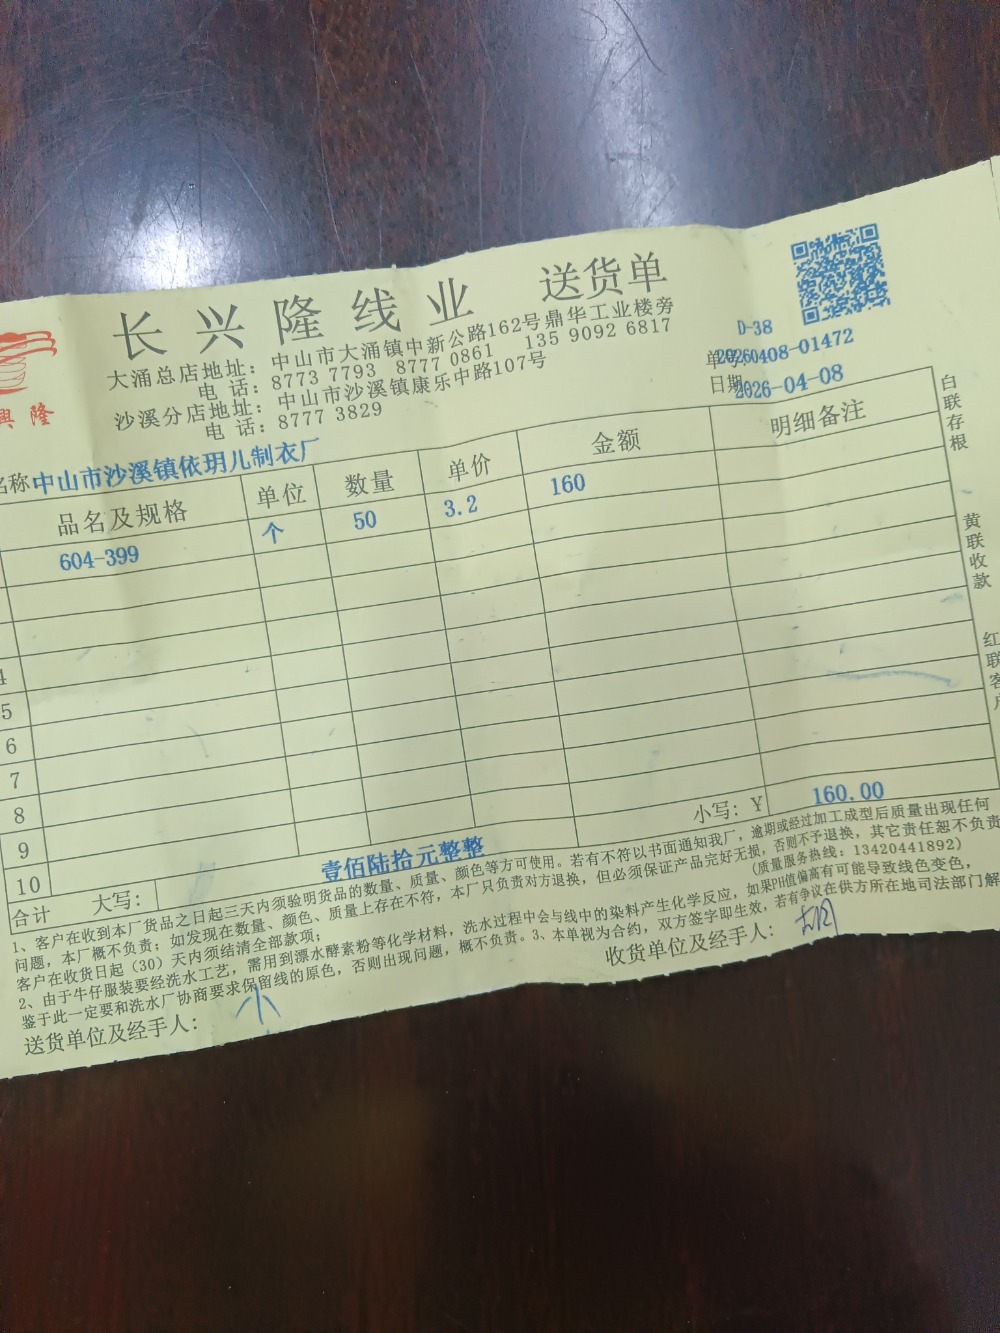 长兴隆线业 送货单
大涌总店地址：中山市大涌镇中新公路162号鼎华工业楼旁
电 话：8773 7793 8777 0861 135 9092 6817
沙溪分店地址：中山市沙溪镇康乐中路107号
电 话：8777 3829
興隆
D-38
单号:20260408-01472
日期2026-04-08
名称 中山市沙溪镇依玥儿制衣厂
品名及规格 单位 数量 单价 金额 明细备注
604-399 个 50 3.2 160
4
5
6
7
8
9
10
小写：¥ 160.00
合计 大写： 壹佰陆拾元整整
1、客户在收到本厂货品之日起三天内须验明货品的数量、质量、颜色等方可使用。若有不符以书面通知我厂，逾期或经过加工成型后质量出现任何
问题，本厂概不负责；如发现在数量、颜色、质量上存在不符，本厂只负责对方退换，但必须保证产品完好无损，否则不予退换，其它责任恕不负责
客户在收货日起（30）天内须结清全部款项； (质量服务热线：13420441892)
2、由于牛仔服装要经洗水工艺，需用到漂水酵素粉等化学材料，洗水过程中会与线中的染料产生化学反应，如果PH值偏高有可能导致线色变色，
鉴于此一定要和洗水厂协商要求保留线的原色，否则出现问题，概不负责。3、本单视为合约，双方签字即生效，若有争议在供方所在地司法部门解
送货单位及经手人： 小
收货单位及经手人：
白联存根
黄联收款
红联客户